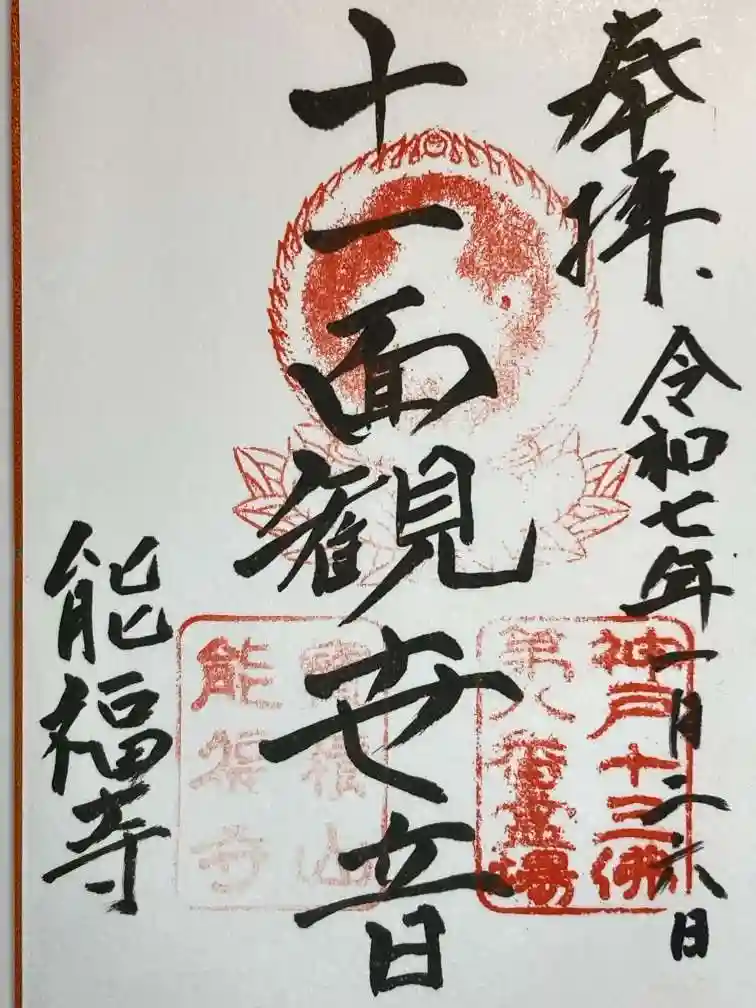 奉拝
令和七年一月二六日
神戸十三佛
第八番霊場
十一面観世音
寳積山
能福寺
能福寺